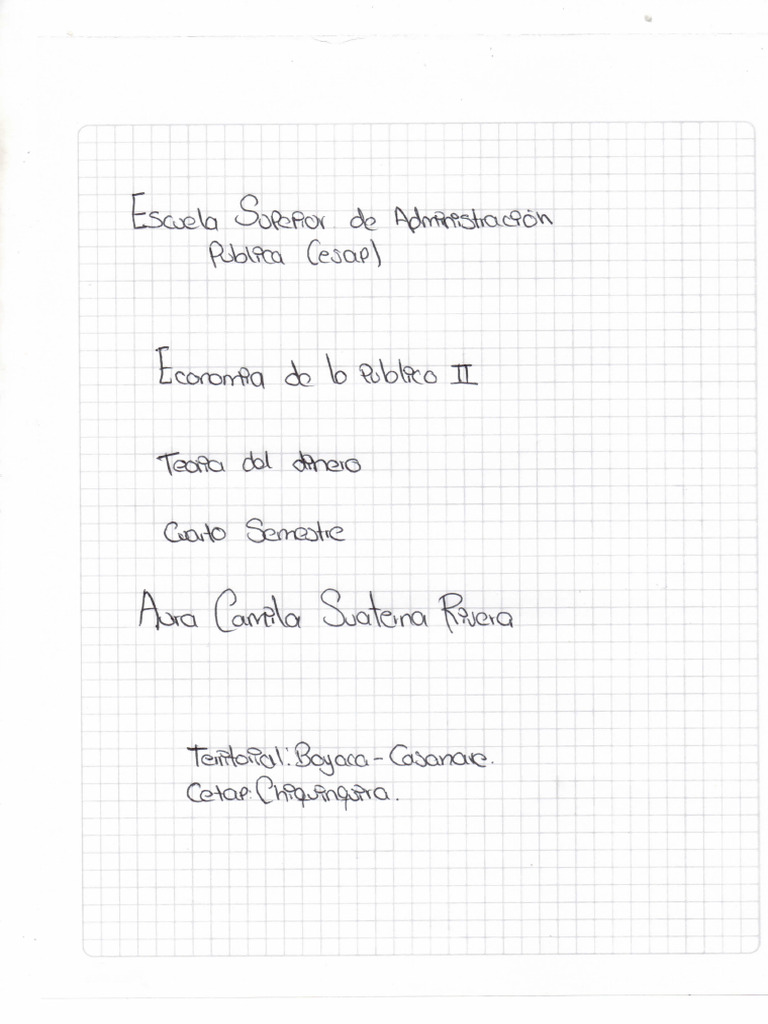 Escuela Superior de Administración
Publica (esap)
Economia de lo Publico II
Teoria del dinero
Cuarto Semestre
Aura Camila Suaterna Rivera
Territorial: Boyaca - Casanare.
Cetap: Chiquinquira.